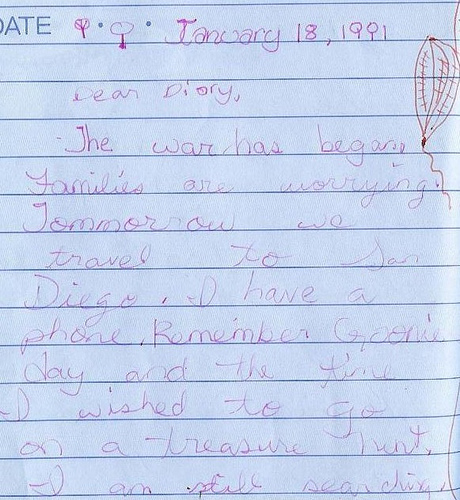 DATE January 18, 1991
Dear Diary,
The war has began,
Families are worrying.
Tommorrow we
travel to San
Diego. I have a
phone. Remember Goonie
day and the time
I wished to go
on a treasure hunt,
I am still searching